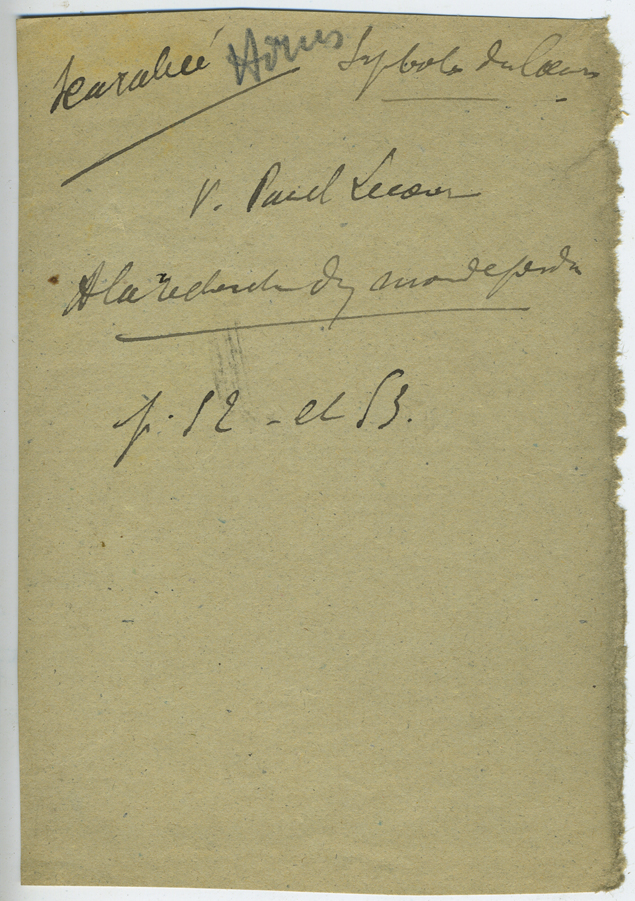 Scarabée Horus Symbole du Coeur
V. Paul Lecour
A la recherche d'un monde perdu
p. 52 - et 53.